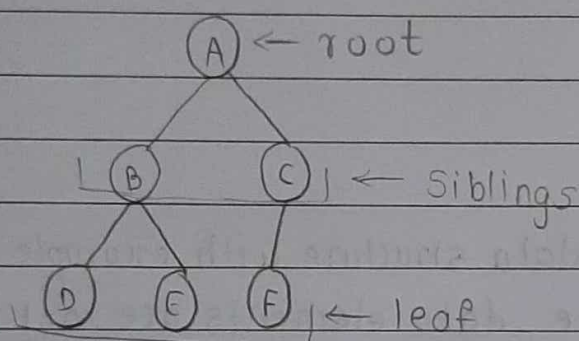 A ← root
B C ← Siblings
D E F ← leaf